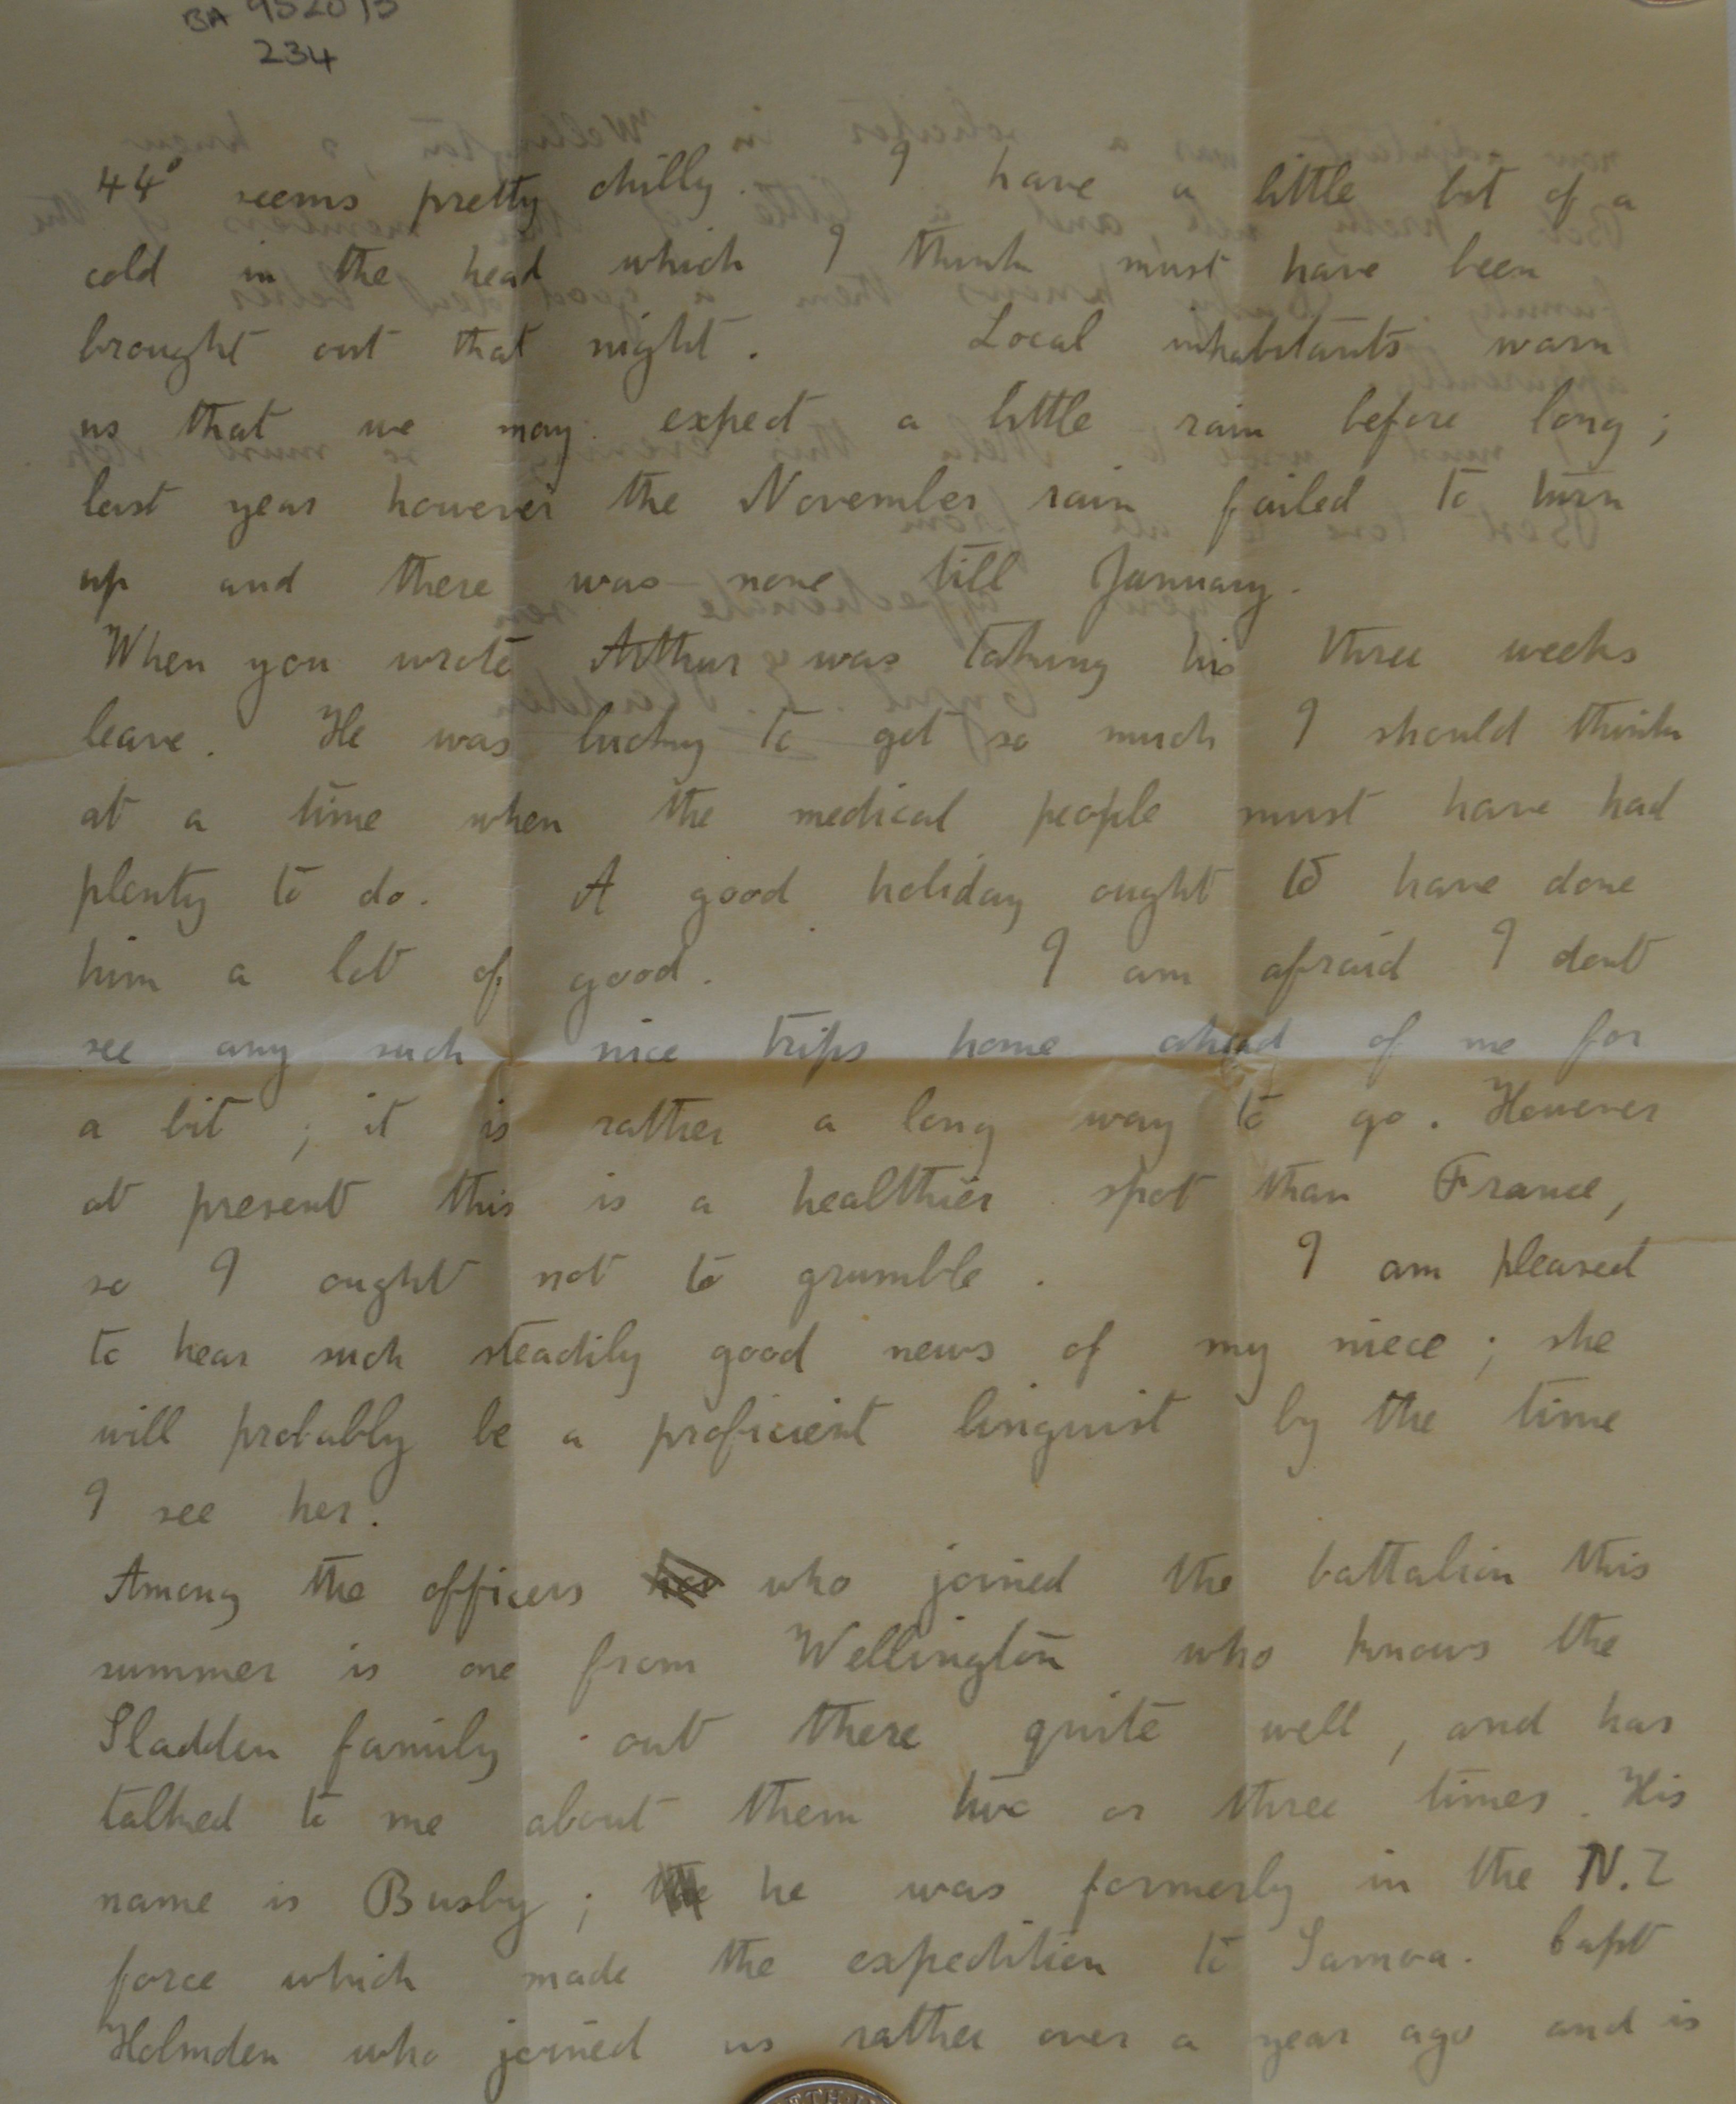 BA 952015
234
44° seems pretty chilly. I have a little bit of a
cold in the head which I think must have been
brought out that night. Local inhabitants warn
us that we may expect a little rain before long;
last year however the November rain failed to turn
up and there was none till January.
When you wrote Arthur was taking his three weeks
leave. He was lucky to get so much I should think
at a time when the medical people must have had
plenty to do. A good holiday ought to have done
him a lot of good. I am afraid I dont
see any such nice trips home ahead of me for
a bit; it is rather a long way to go. However
at present this is a healthier spot than France,
so I ought not to grumble. I am pleased
to hear such steadily good news of my niece; she
will probably be a proficient linguist by the time
I see her.
Among the officers who joined the battalion this
summer is one from Wellington who knows the
Sladden family out there quite well, and has
talked to me about them two or three times. His
name is Busby; he was formerly in the N.Z
force which made the expedition to Samoa. Capt
Holmden who joined us rather over a year ago and is